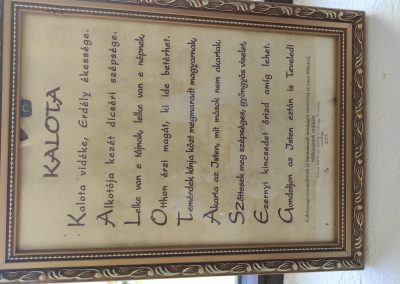 KALOTA
Kalota vidéke, Erdély ékessége.
Alkotója kezét dicséri szépsége.
Lelke van e tájnak, lelke van e népnek,
Otthon érzi magát, ki ide betérhet.
Temérdek kínja közt megmaradt magyarnak,
Akarta az Isten, mit mások nem akartak.
Szőttesek meg szépséges, gyöngyös viselet,
Ezernyi kincsedet őrizd amíg lehet.
Gondoljon az Isten ezután is Teveled!